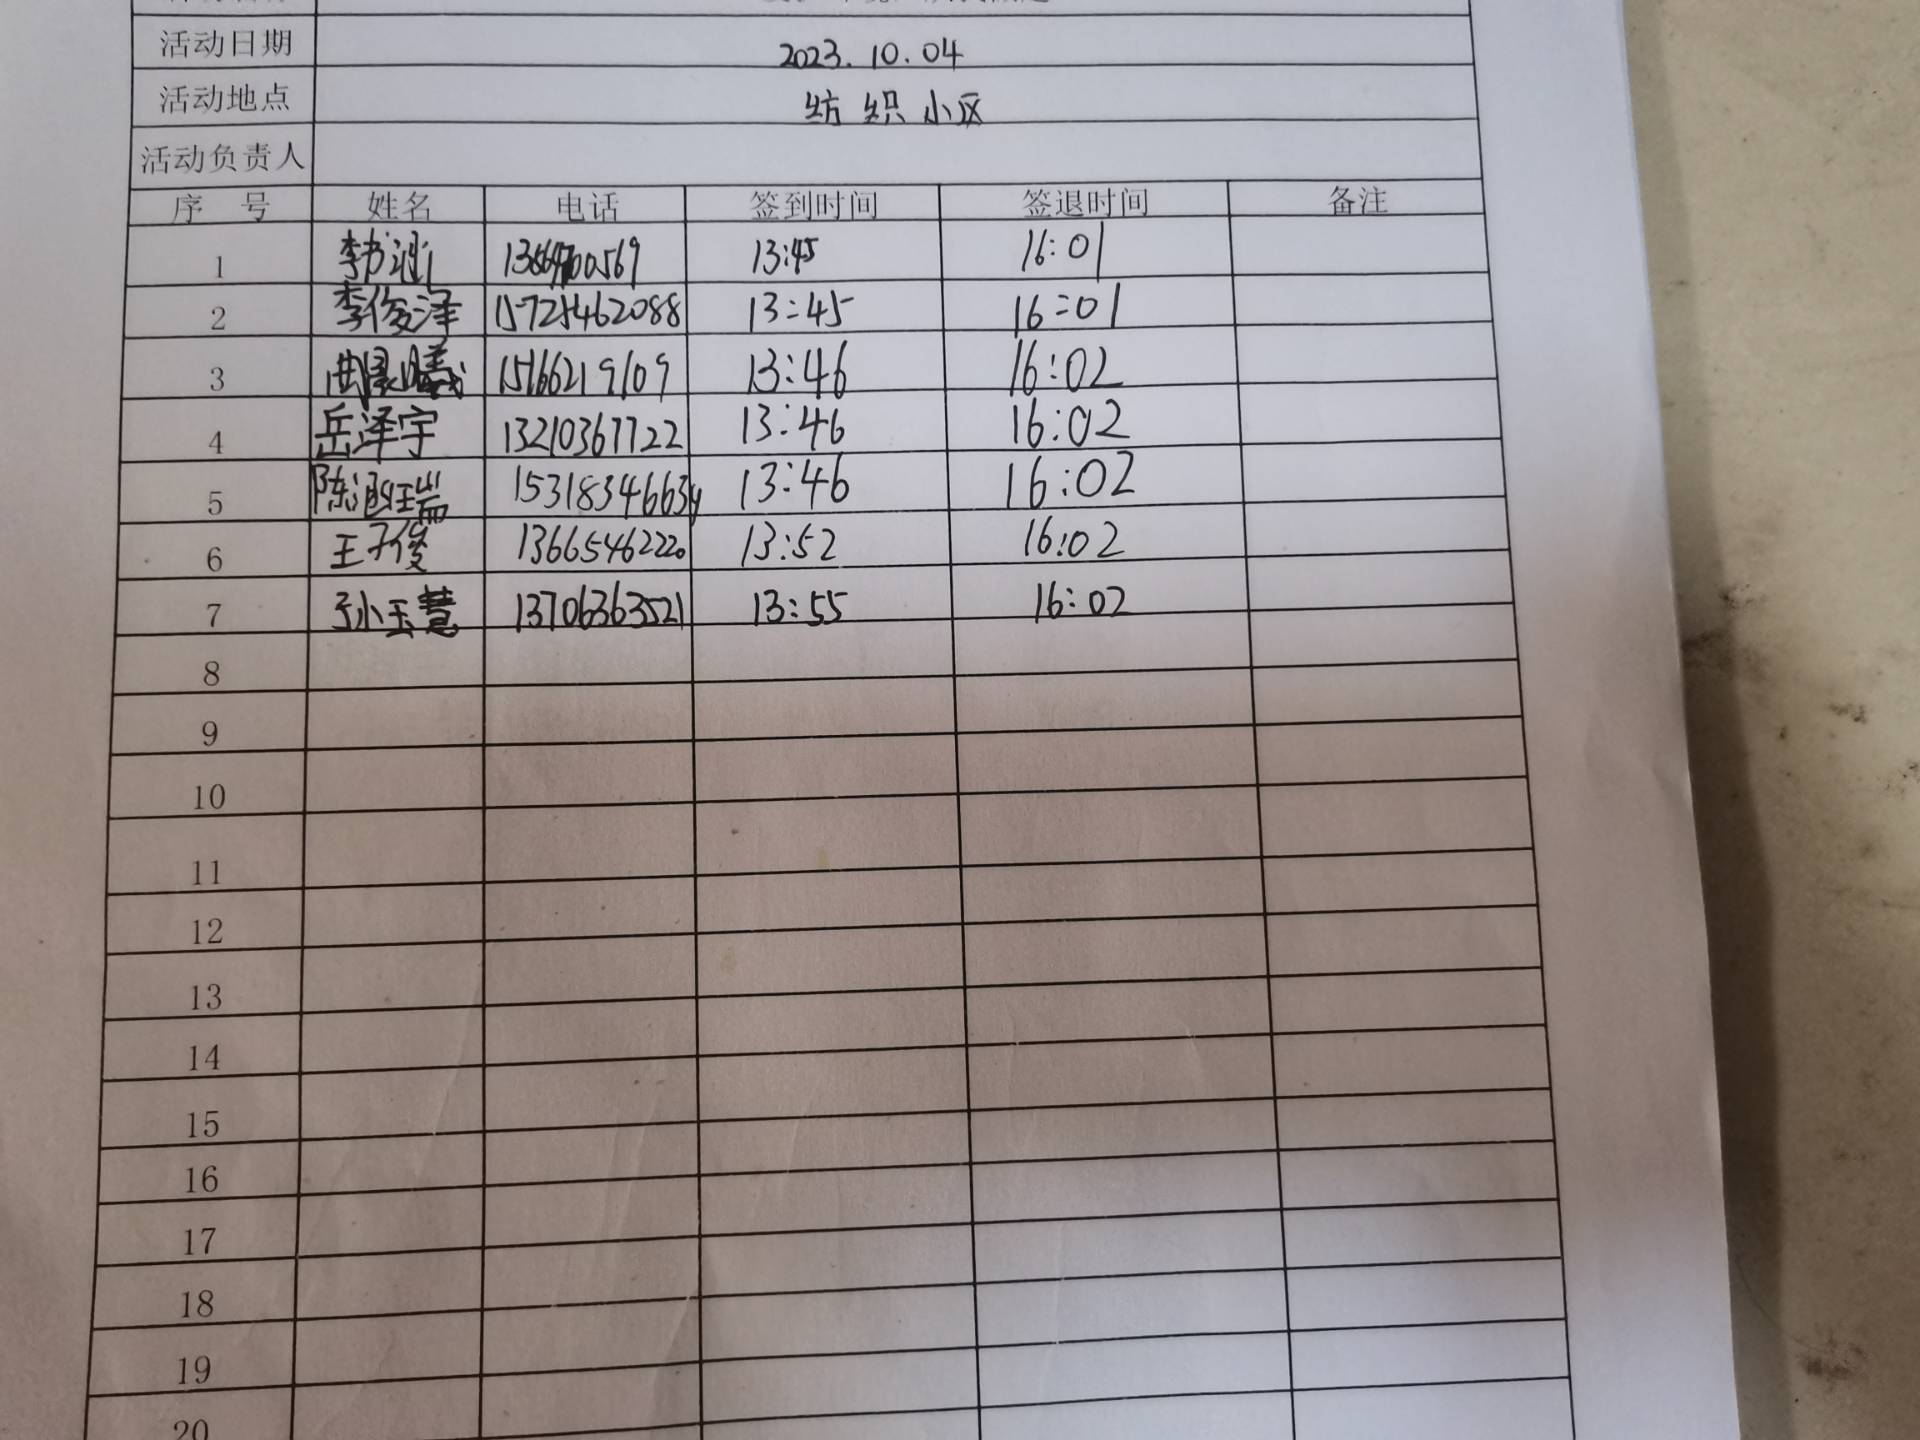 活动日期 2023.10.04
活动地点 纺织小区
活动负责人
序 号 姓名 电话 签到时间 签退时间 备注
1 李书 13:45 16:01
2 李俊泽 15725462088 13:45 16:01
3 曲晨曦 15166219109 13:46 16:02
4 岳泽宇 13210367722 13:46 16:02
5 陈涵瑞 15318346634 13:46 16:02
6 王子俊 13665462220 13:52 16:02
7 孙玉慧 13706363521 13:55 16:02
8
9
10
11
12
13
14
15
16
17
18
19
20